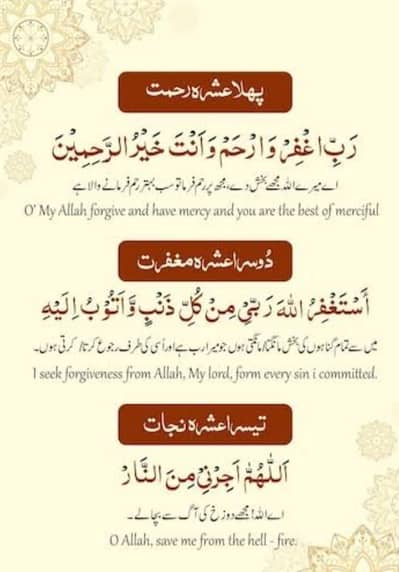 پہلا عشرہ رحمت
رَبِّ اغْفِرْ وَارْحَمْ وَاَنْتَ خَيْرُ الرّٰحِمِيْنَ
اے میرے اللہ مجھے بخش دے، مجھ پر رحم فرما تو سب بہتر رحم فرمانے والا ہے
O' My Allah forgive and have mercy and you are the best of merciful
دُوسرا عشرہ مغفرت
أَسْتَغْفِرُ اللهَ رَبِّيْ مِنْ كُلِّ ذَنْبٍ وَّاَتُوْبُ اِلَيْهِ
میں سے تمام گناہوں کی بخشش مانگتا/مانگتی ہوں جو میرا رب ہے اور اُسی کی طرف رجوع کرتا/ کرتی ہوں۔
I seek forgiveness from Allah, My lord, form every sin i committed.
تیسرا عشرہ نجات
اَللّٰهُمَّ اَجِرْنِيْ مِنَ النَّارْ
اے اللہ! مجھے دوزخ کی آگ سے بچا لے۔
O Allah, save me from the hell - fire.